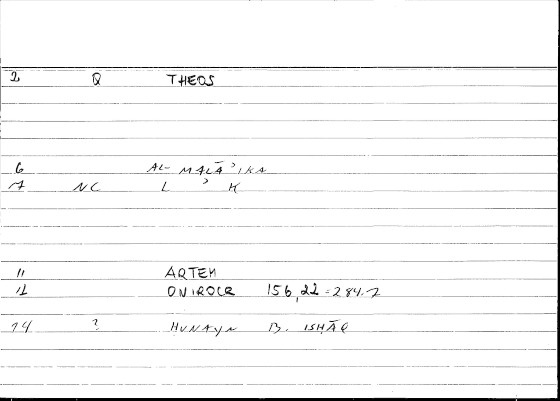 2 Q THEOS
6 AL-MALĀʾIKA
7 NC L ʾ K
11 ARTEM
12 ONIROCR 156,22 = 284.2
14 ? HUNAYN B. ISHĀQ